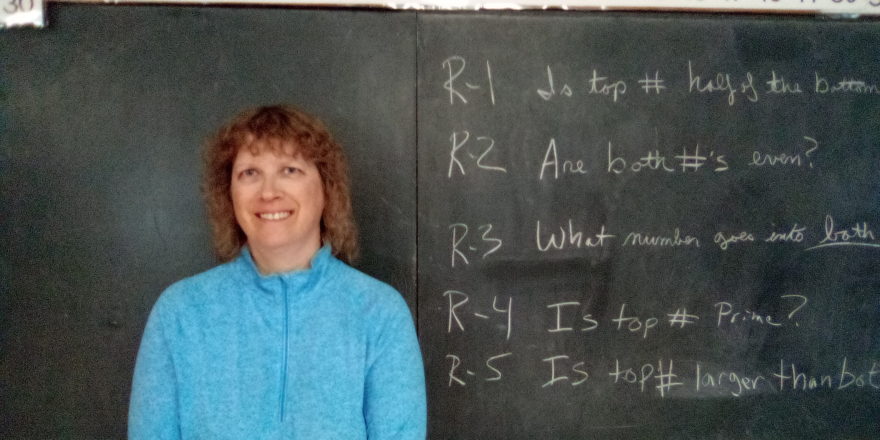 30
R-1 Is top # half of the bottom
R-2 Are both #'s even?
R-3 What number goes into both
R-4 Is top # Prime?
R-5 Is top# larger than bot